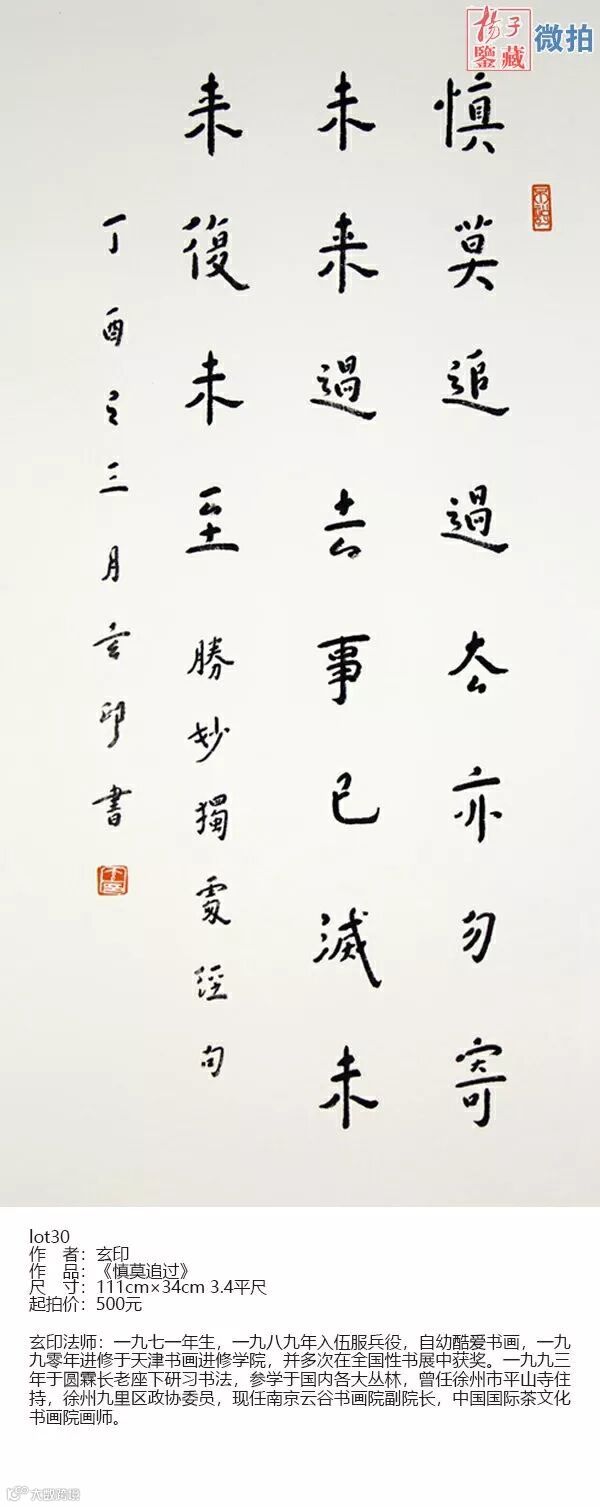 楊子
鑒藏
微拍
慎莫追過去亦勿寄
未来過去事已滅未
来復未至 勝妙獨處經句
丁酉之三月玄印書
lot30
作 者：玄印
作 品：《慎莫追过》
尺 寸：111cm×34cm 3.4平尺
起拍价：500元
玄印法师：一九七一年生，一九八九年入伍服兵役，自幼酷爱书画，一九
九零年进修于天津书画进修学院，并多次在全国性书展中获奖。一九九三
年于圆霖长老座下研习书法，参学于国内各大丛林，曾任徐州市平山寺住
持，徐州九里区政协委员，现任南京云谷书画院副院长，中国国际茶文化
书画院画师。
大数跨境